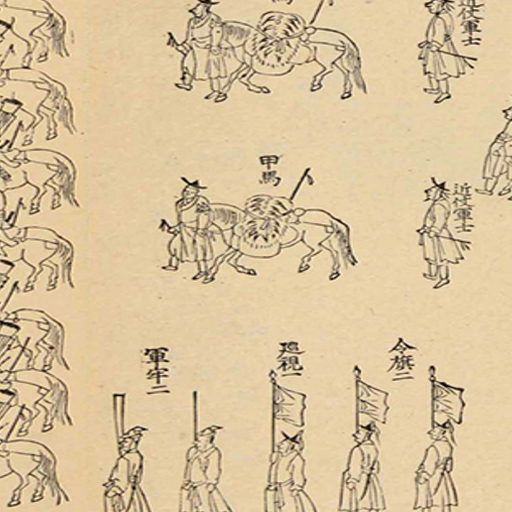 近仗軍士
馬
近仗軍士
甲馬
令旗二
巡視一
軍牢二